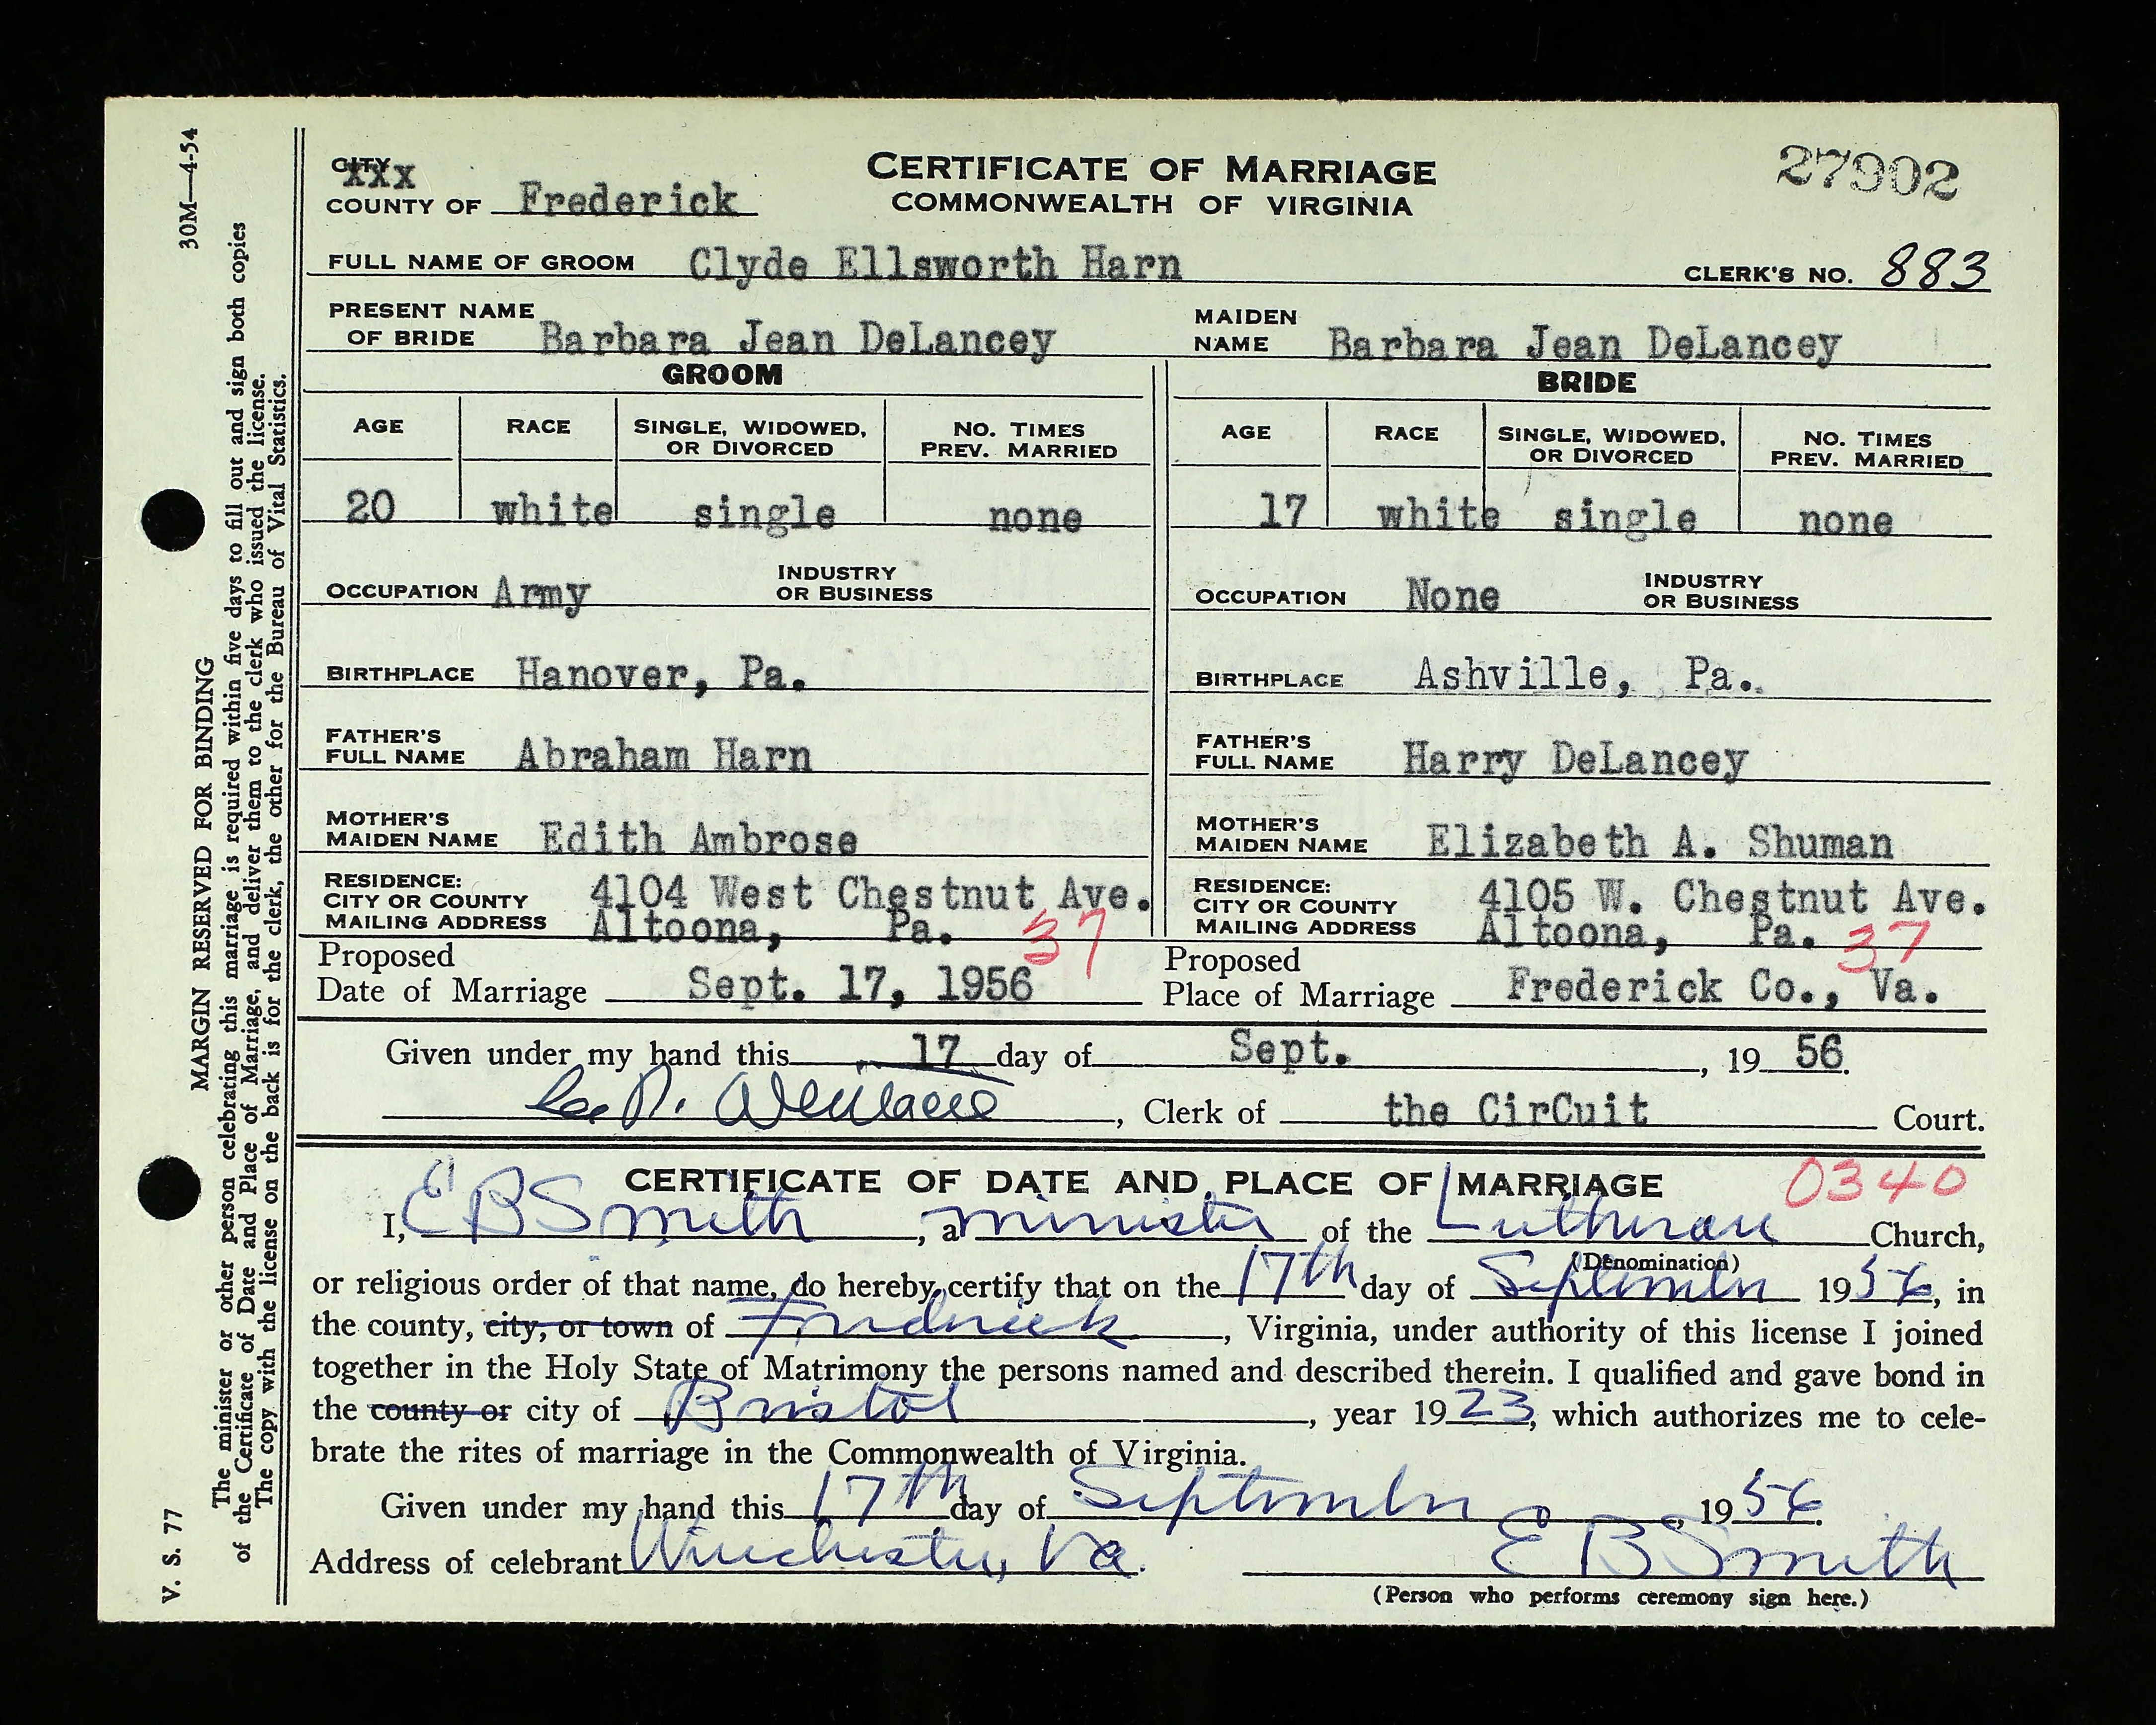 30M—4-54
MARGIN RESERVED FOR BINDING
The minister or other person celebrating this marriage is required within five days to fill out and sign both copies
of the Certificate of Date and Place of Marriage, and deliver them to the clerk who issued the license.
The copy with the license on the back is for the clerk, the other for the Bureau of Vital Statistics.
V. S. 77
CITY
xxx
COUNTY OF Frederick
CERTIFICATE OF MARRIAGE
COMMONWEALTH OF VIRGINIA
27902
FULL NAME OF GROOM Clyde Ellsworth Harn CLERK'S NO. 883
PRESENT NAME
OF BRIDE Barbara Jean DeLancey
MAIDEN
NAME Barbara Jean DeLancey
GROOM BRIDE
AGE RACE SINGLE, WIDOWED, OR DIVORCED NO. TIMES PREV. MARRIED AGE RACE SINGLE, WIDOWED, OR DIVORCED NO. TIMES PREV. MARRIED
20 white single none 17 white single none
OCCUPATION Army INDUSTRY OR BUSINESS OCCUPATION None INDUSTRY OR BUSINESS
BIRTHPLACE Hanover, Pa. BIRTHPLACE Ashville, Pa.
FATHER'S FULL NAME Abraham Harn FATHER'S FULL NAME Harry DeLancey
MOTHER'S MAIDEN NAME Edith Ambrose MOTHER'S MAIDEN NAME Elizabeth A. Shuman
RESIDENCE: CITY OR COUNTY MAILING ADDRESS 4104 West Chestnut Ave. Altoona, Pa. 37 RESIDENCE: CITY OR COUNTY MAILING ADDRESS 4105 W. Chestnut Ave. Altoona, Pa. 37
Proposed Date of Marriage Sept. 17, 1956 Proposed Place of Marriage Frederick Co., Va.
Given under my hand this 17 day of Sept., 19 56.
, Clerk of the CirCuit Court.
CERTIFICATE OF DATE AND PLACE OF MARRIAGE 0340
I, E B Smith, a minister of the Lutheran Church,
(Denomination)
or religious order of that name, do hereby certify that on the 17th day of September 1956, in
the county, city, or town of Frederick, Virginia, under authority of this license I joined
together in the Holy State of Matrimony the persons named and described therein. I qualified and gave bond in
the county or city of Bristol, year 1923, which authorizes me to cele-
brate the rites of marriage in the Commonwealth of Virginia.
Given under my hand this 17th day of September, 1956.
Address of celebrant Winchester, Va. E B Smith
(Person who performs ceremony sign here.)